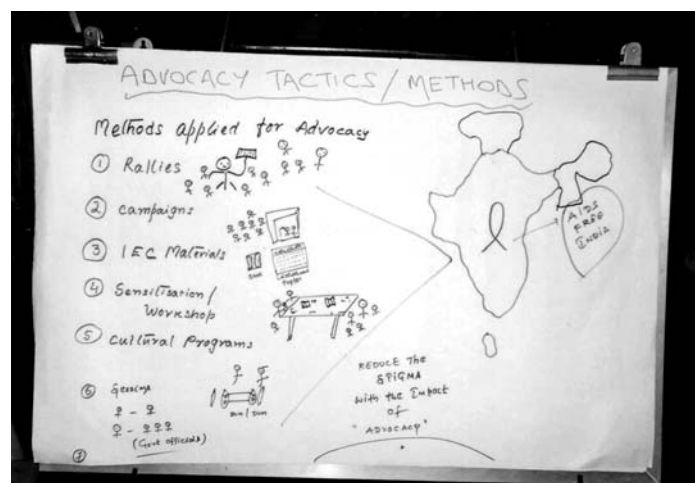 ADVOCACY TACTICS/METHODS
Methods applied for Advocacy
① Rallies
② Campaigns
③ IEC Materials
Book
Poster
④ Sensitisation/
Workshop
⑤ Cultural Programs
⑥
(Govt officials)
⑦
AIDS
FREE
INDIA
REDUCE The
with the Impact
of
"ADVOCACY"